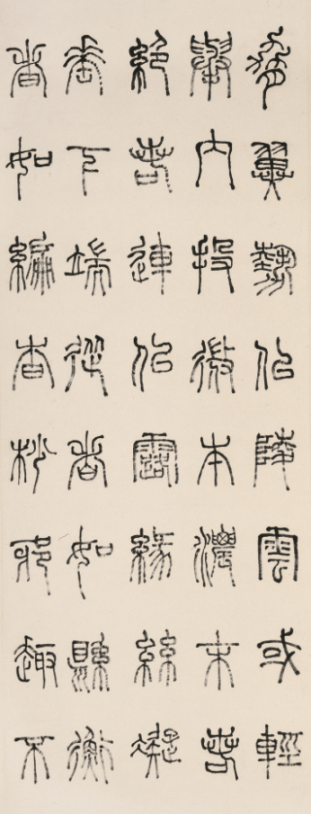 脅翼勢似陵雲或輕
舉內投微本濃末若
絕若連似露緣絲凝
垂下端從者如縣衡
者如編杳杪邪趣不